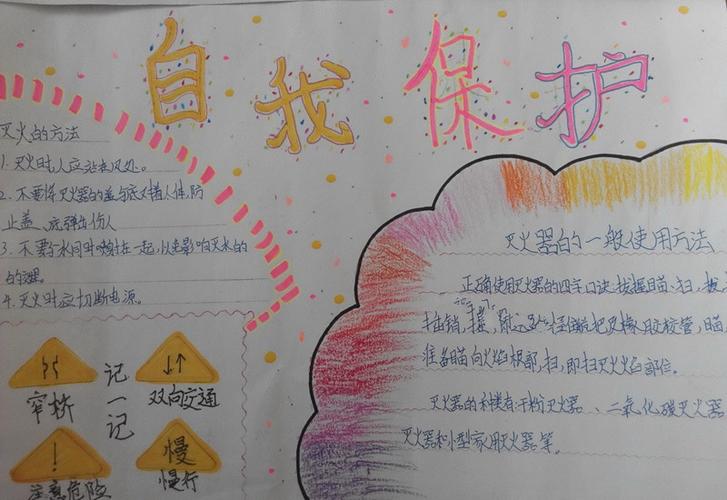 自我保护
灭火的方法
1. 灭火时人应站在风处。
2. 不要将灭火器的盖与底对着人体,防
止盖、底弹出伤人
3. 不要与水同时喷射在一起,以免影响灭火的
的
4. 灭火时应切断电源。
记一记
窄桥
双向交通
注意危险
慢
慢行
灭火器的一般使用方法
正确使用灭火器的四字口诀:拔握瞄扫,拔
插销,握
准备瞄向火焰根部,扫,即扫灭火焰部位。
灭火器的种类有:干粉灭火器、二氧化碳灭火器
灭火器和小型家用灭火器等。